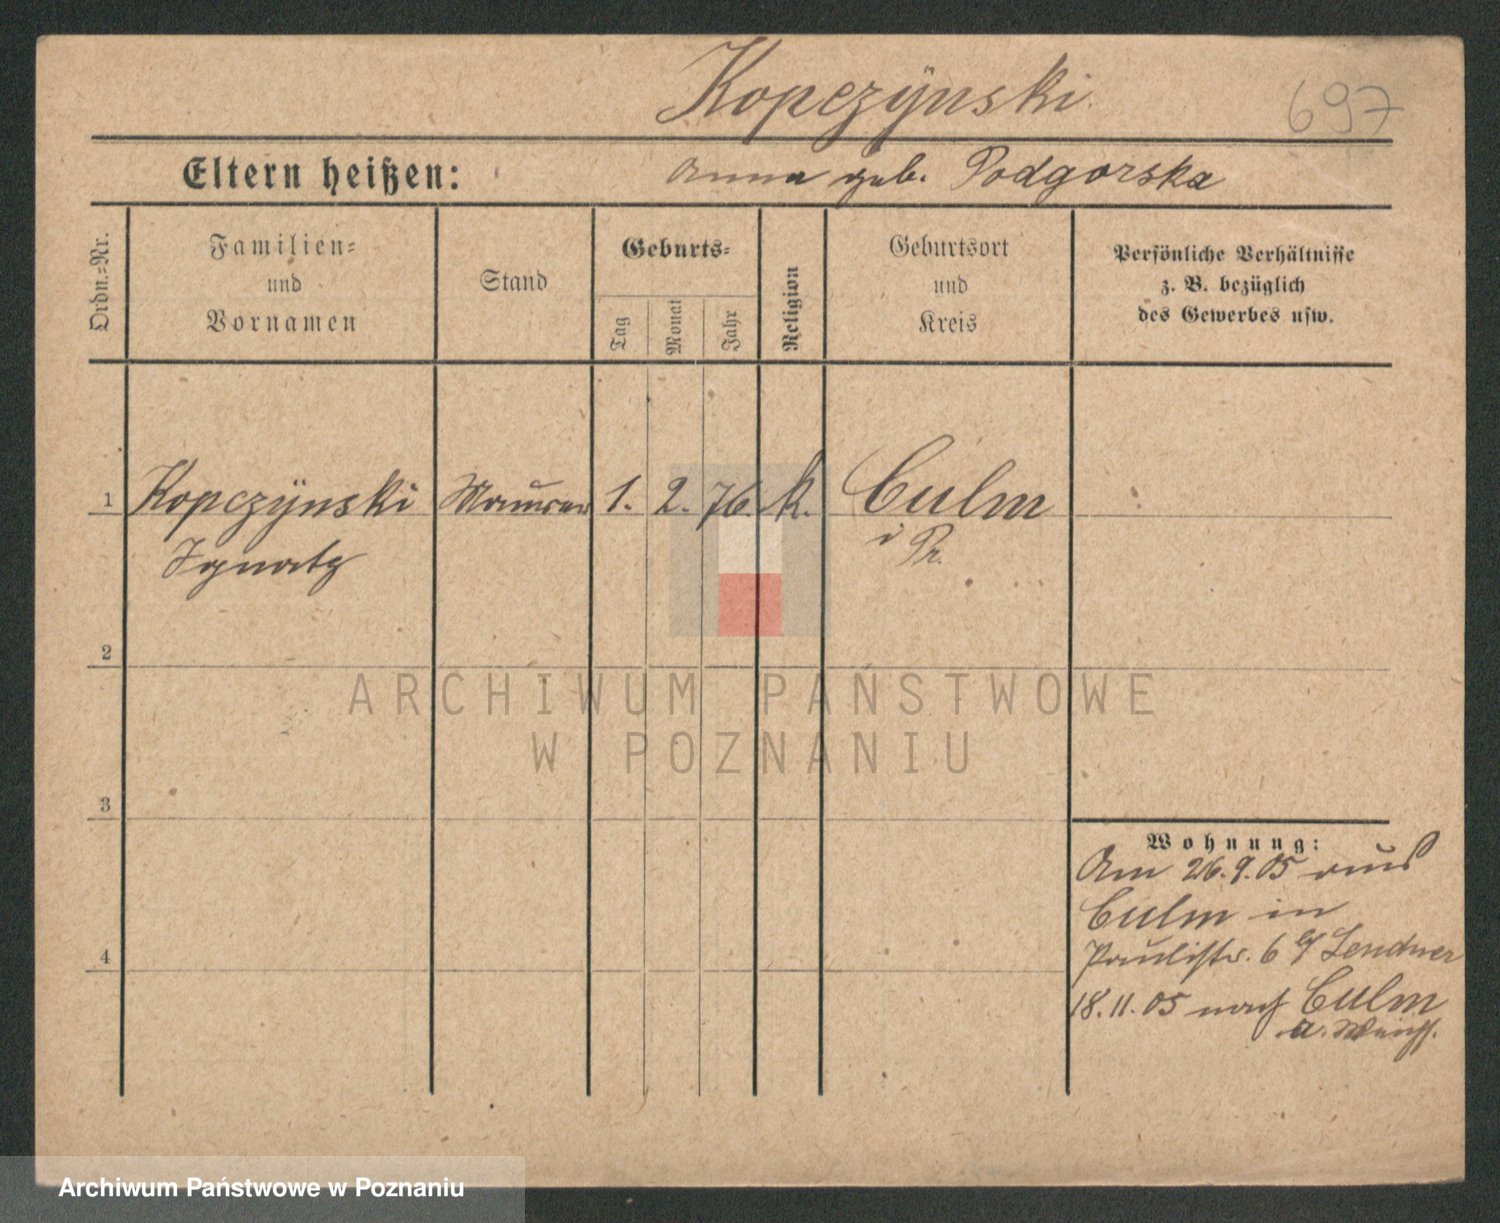 Kopczÿnski
697
Eltern heißen:
Anna geb. Podgorska
Ordn.-Nr.
Familien-
und
Vornamen
Stand
Geburts-
Tag
Monat
Jahr
Religion
Geburtsort
und
Kreis
Persönliche Verhältnisse
z. B. bezüglich
des Gewerbes usw.
1 Kopczÿnski Maurer 1. 2. 76. k. Culm
Ignatz
i Pr.
2
ARCHIWUM PAŃSTWOWE
W POZNANIU
3
4
Wohnung:
Am 26.9.05 aus
Culm in
Paulistr. 6 b/ Lendner
18.11.05 nach Culm
a. Weichs.
Archiwum Państwowe w Poznaniu